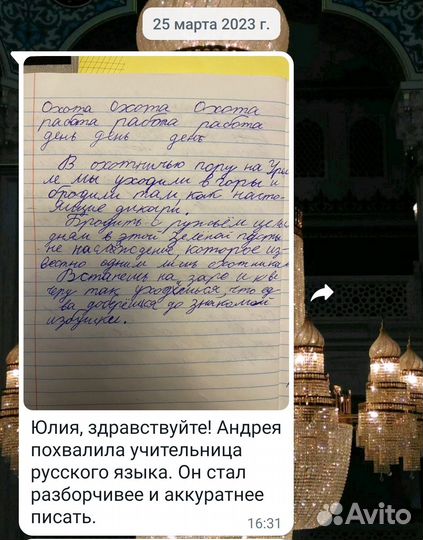 25 марта 2023 г.
Охота Охота Охота
работа работа работа
день день день
В охотничью пору на Ура
ле мы уходили в горы и
бродили там, как насто-
ящие дикари.
Бродить с ружьём целым
дням в этой зелёной пусты
не наслаждение, которое из-
вестно одним лишь охотникам
Встанешь на заре и к ве
черу так уходишься, что ед
ва добрёшься до знакомой
избушки.
Юлия, здравствуйте! Андрея
похвалила учительница
русского языка. Он стал
разборчивее и аккуратнее
писать.
16:31
Avito